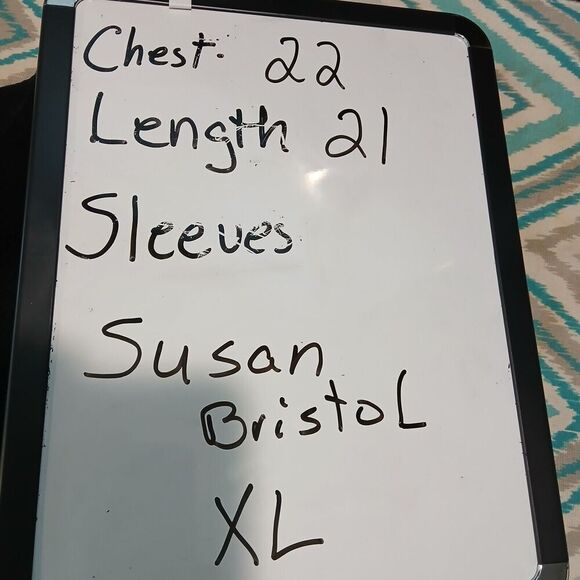 Chest. 22
Length 21
Sleeves
Susan
Bristol
XL